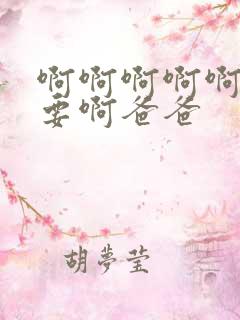 啊啊啊啊啊
要啊爸爸
胡夢莹